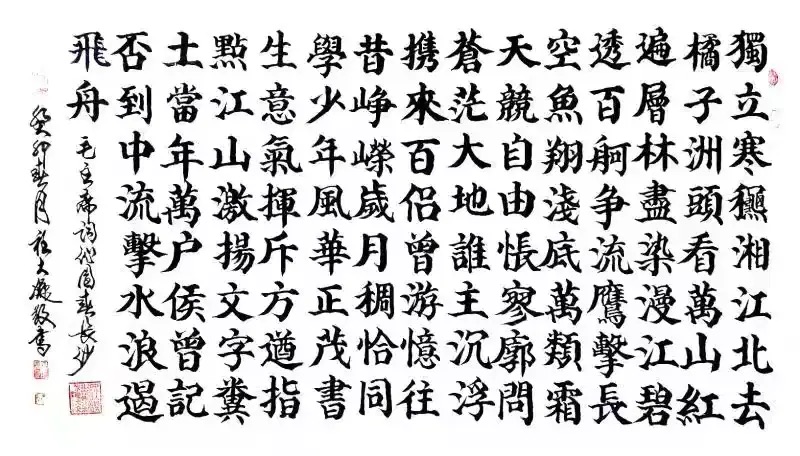 獨立寒穐湘江北去
橘子洲頭看萬山紅
遍層林盡染漫江碧
透百舸争流鷹擊長
空魚翔淺底萬類霜
天競自由悵寥廓問
蒼茫大地誰主沉浮
携來百侣曾游憶往
昔崢嶸歲月稠恰同
學少年風華正茂書
生意氣揮斥方遒指
點江山激揚文字糞
土當年萬户侯曾記
否到中流擊水浪遏
飛舟
毛主席词沁园春长沙
癸卯春月敬書